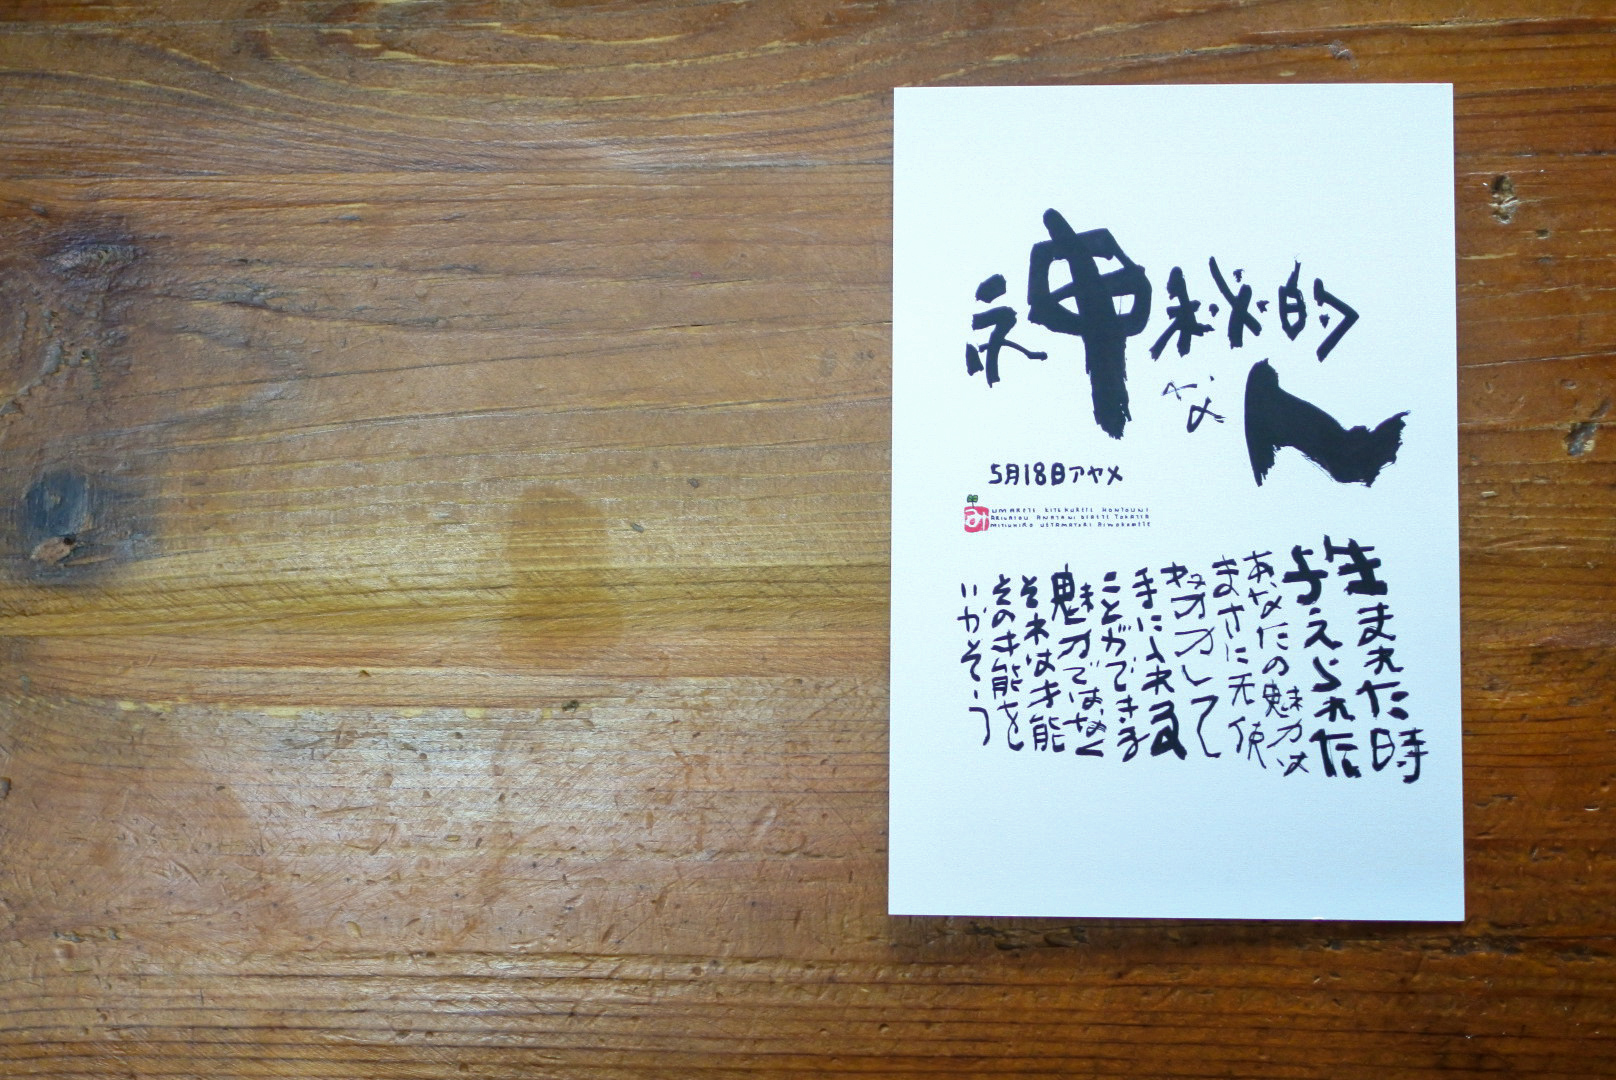 神秘的
な人
5月18日アヤメ
み
UMARETE KITEKURETE HONTOUNI
ARIGATOU ANATANI DEAETE YOKATTA
MITSUHIRO
生まれた時
与えられた
あなたの魅力は
まさに天使
努力して
手に入れる
ことができる
魅力ではなく
それは才能
その才能を
いかそう